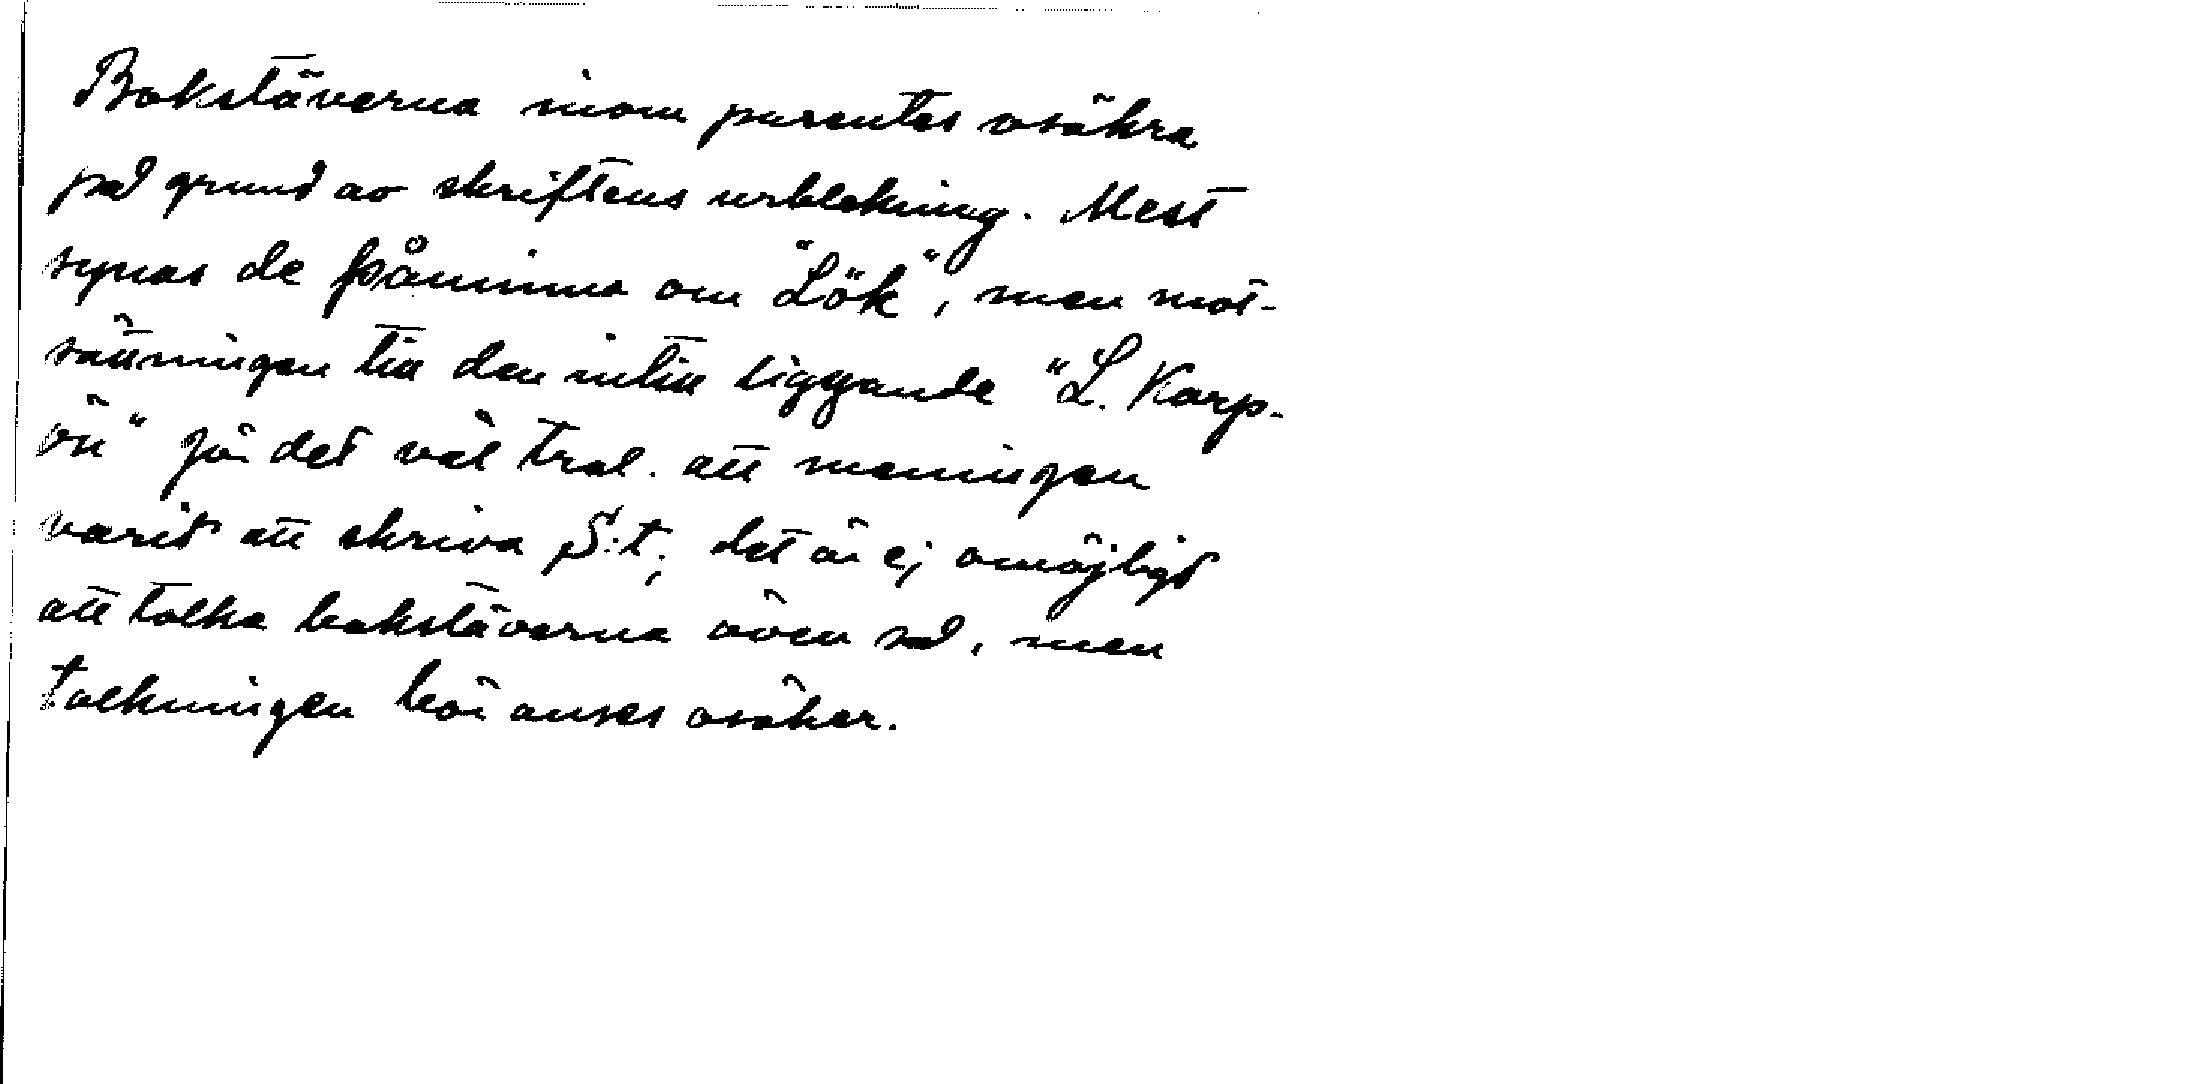 Bokstäverna inom parentes osäkra
på grund av skriftens urblekning. Mest
synas de påminna om "Lök", men mot-
sättningen till den intill liggande "L. Karp-
ön" gör det väl trol. att meningen
varit att skriva S:t; det är ej omöjligt
att tolka bokstäverna även så, men
tolkningen bör anses osäker.